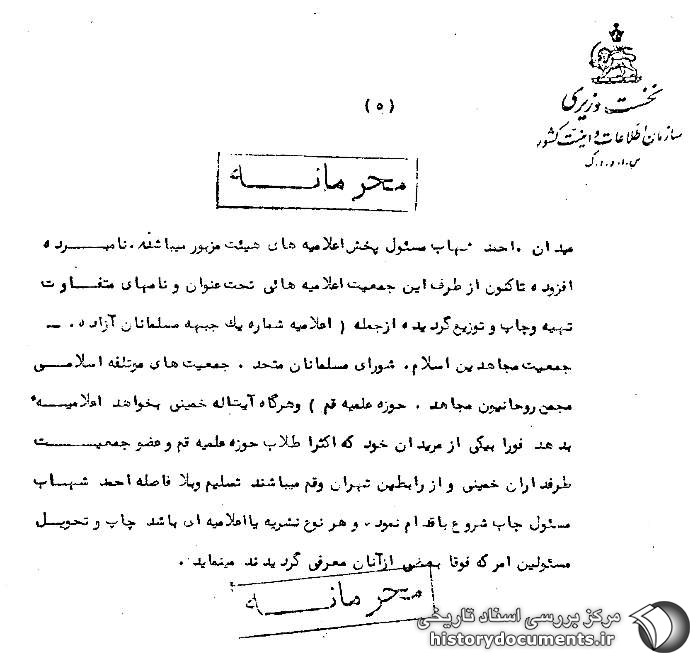 نخست وزیری
سازمان اطلاعات و امنیت کشور
س.ا.و.ا.ک
(۵)
محرمانه
میدان . احمد شهاب مسئول پخش اعلامیه های هیئت مزبور میباشد . نامبرده
افزوده تاکنون از طرف این جمعیت اعلامیه هائی تحت عنوان و نامهای متفاوت
تهیه وچاپ و توزیع گردیده ازجمله ( اعلامیه شماره یك جبهه مسلمانان آزاده . ــ
جمعیت مجاهدین اسلام . شورای مسلمانان متحد . جمعیت های موتلفه اسلامی
مجمن روحانیون مجاهد . حوزه علمیه قم ) وهرگاه آیتاله خمینی بخواهد اعلامیه
بدهد فورا بیکی از مریدان خود که اکثرا طلاب حوزه علمیه قم و عضو جمعیت
طرفداران خمینی و از رابطین تهران وقم میباشند تسلیم وبلا فاصله احمد شهاب
مسئول چاپ شروع باقدام نمود . و هر نوع نشریه یااعلامیه ای باشد چاپ و تحویل
مسئولین امر که فوقا بعضی ازآنان معرفی گردیدند مینماید .
محرمانه
مرکز بررسی اسناد تاریخی
historydocuments.ir